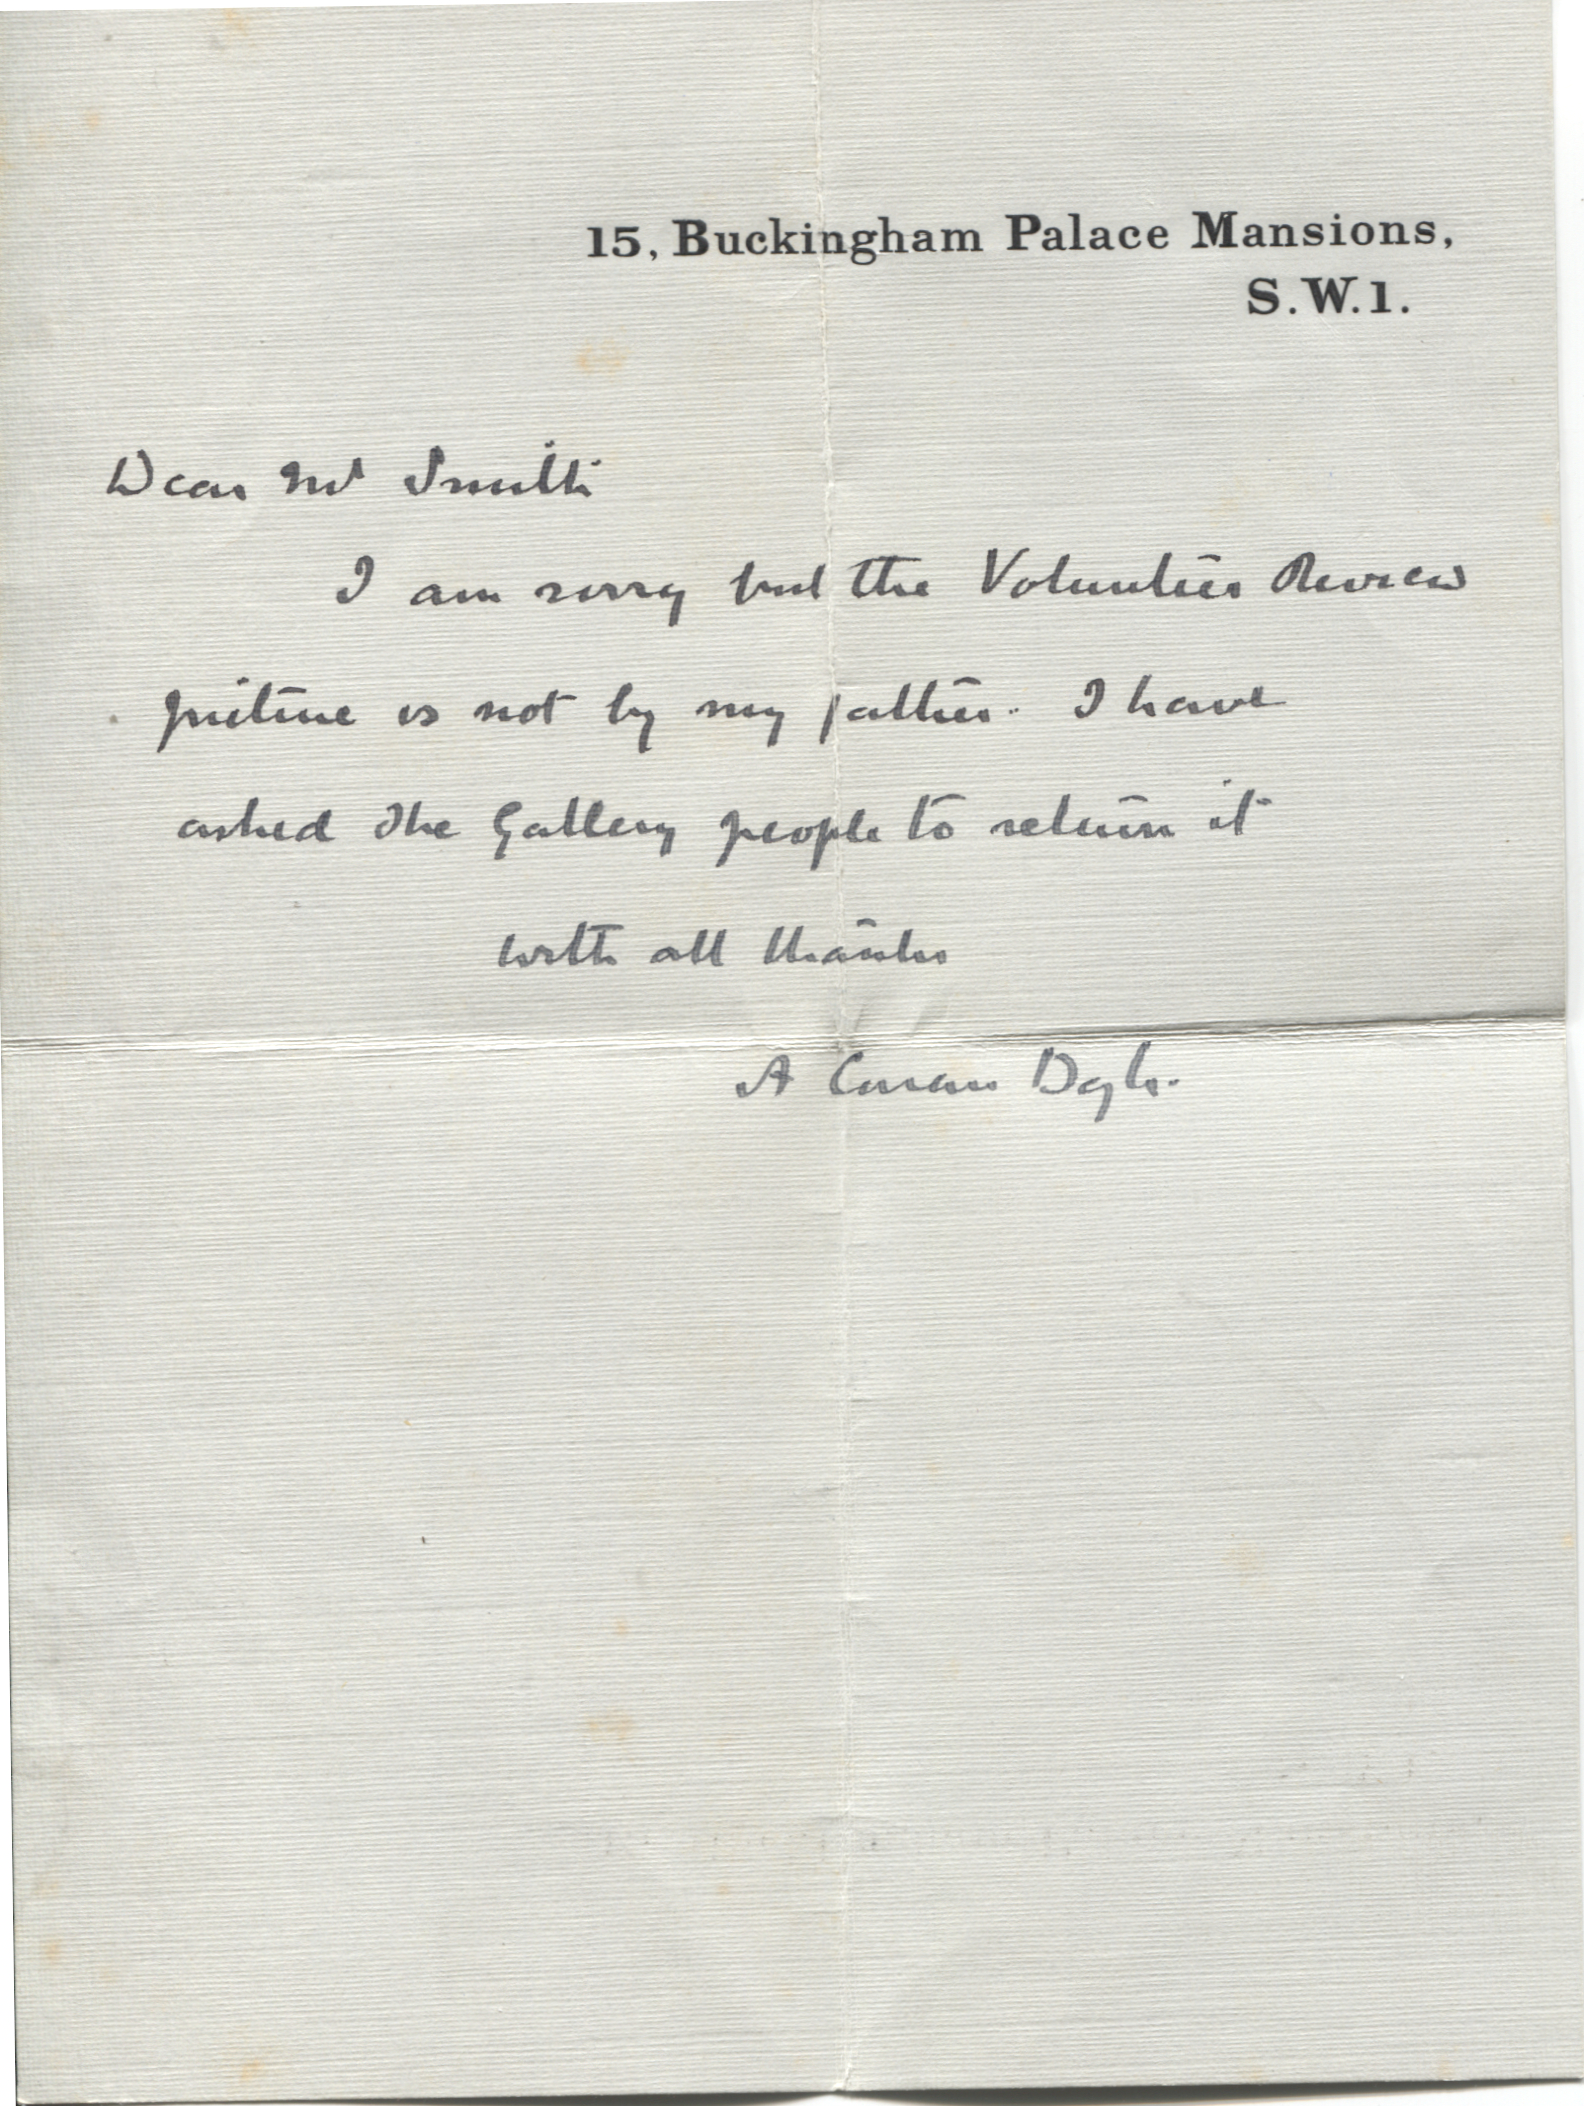 15, Buckingham Palace Mansions,
S.W.1.
Dear Mr Smith
I am sorry but the Volunteer Review
picture is not by my father. I have
asked the Gallery people to return it
with all thanks
A Conan Doyle.